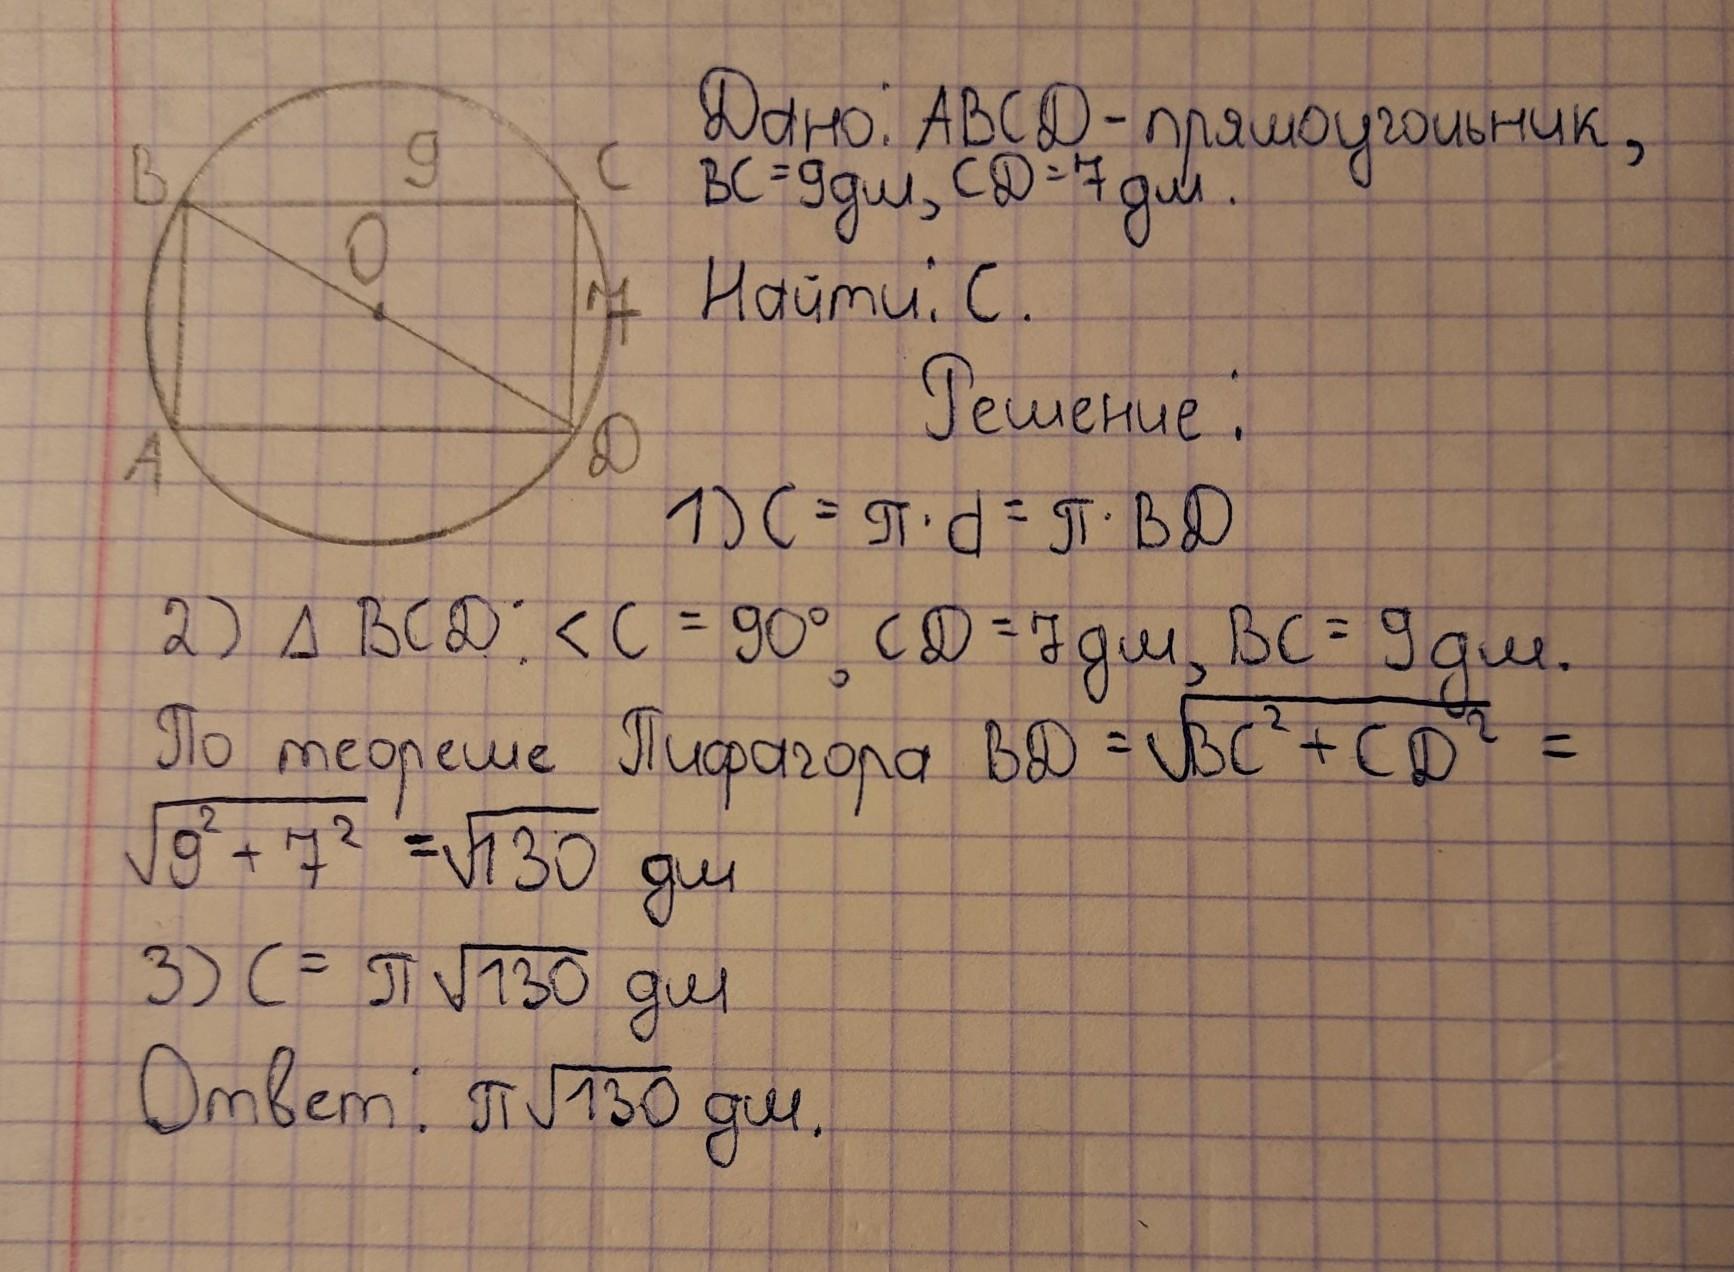 B 9 C
O
7
A D
Дано: ABCD - прямоугольник,
BC = 9дм, CD = 7дм.
Найти: C.
Решение:
1) C = π · d = π · BD
2) Δ BCD: < C = 90°, CD = 7дм, BC = 9дм.
По теореме Пифагора BD = √BC² + CD² =
√9² + 7² = √130 дм
3) C = π √130 дм
Ответ: π√130 дм.